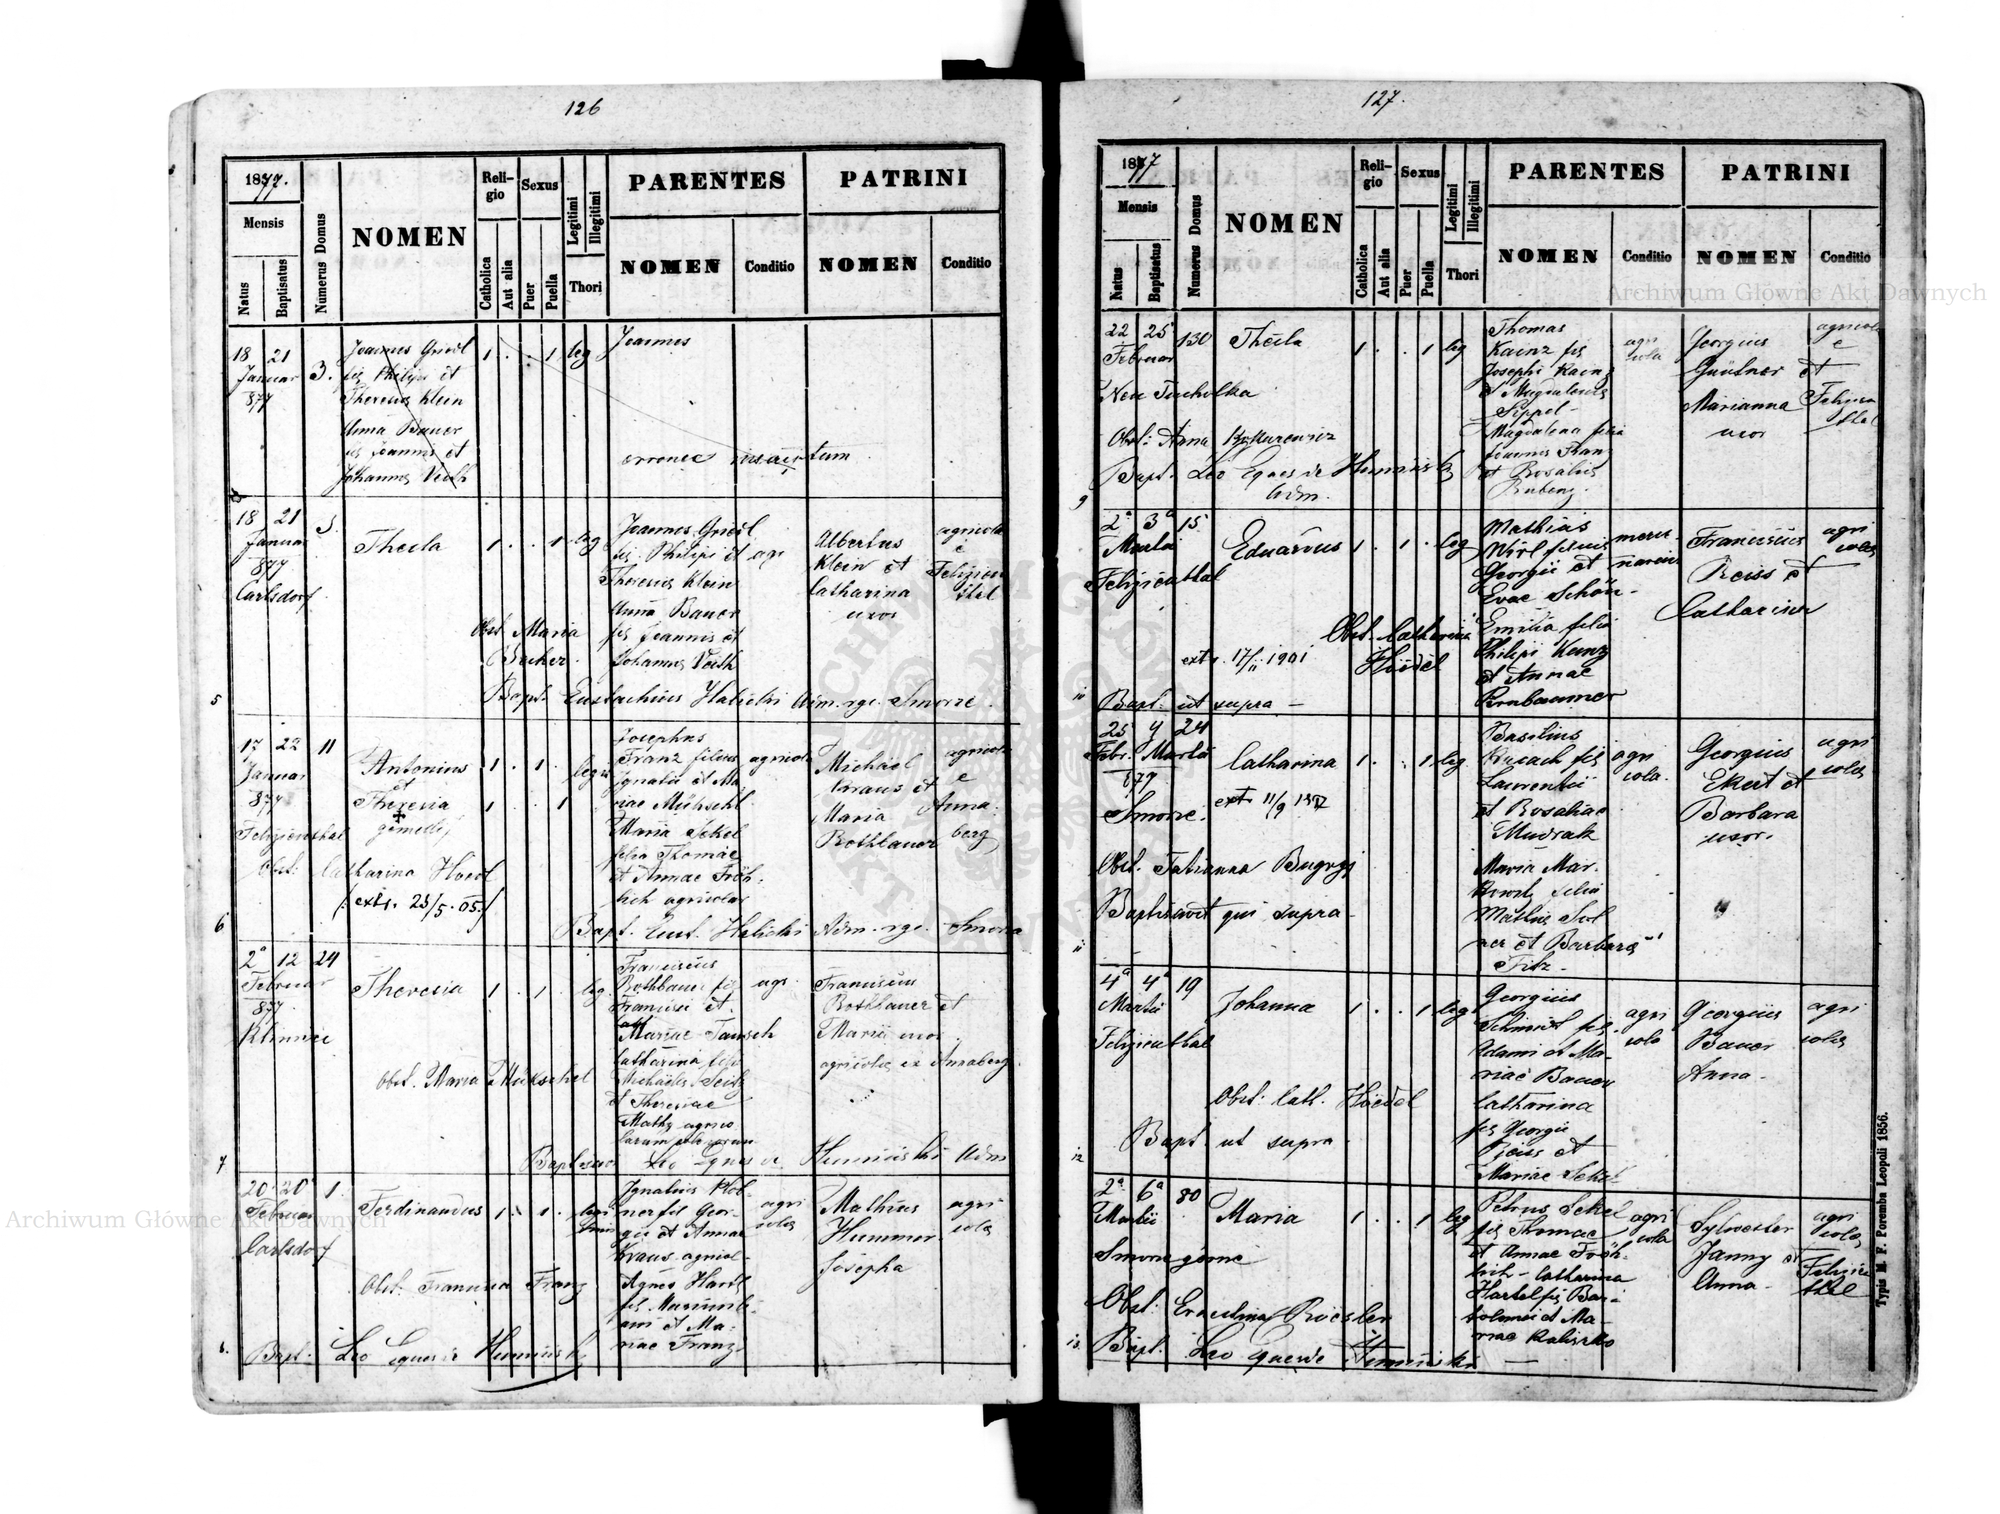 126
1877.
Mensis
Natus
Baptisatus
Numerus Domus
NOMEN
Reli-
gio
Catholica
Aut alia
Sexus
Puer
Puella
Legitimi
Illegitimi
Thori
PARENTES
NOMEN
Conditio
PATRINI
NOMEN
Conditio
18 21
Januar
877
3.
Joannes Griedl
fil Philipi et
Theresiae Klein
Anna Bauer
fil Joannis et
Johannae Veith
1 . . 1 leg
Joannes
erronee insertum
5
18 21
Januar
877
Carlsdorf
3
Thecla
1 . . 1 leg
Joannes Griedl
fil. Philipi et
Theresiae Klein
Anna Bauer
fil Joannis et
Johannae Veith
agr
Albertus
Klein et
Catharina
uxor
agricolae
e
Felizien
thal
Obst. Maria
Becker.
Bapt. Eustachius Halicki Adm. rgc. Smorze.
6
17 22
Januar
877
Felizienthal
11
Antonius
et
Theresia
gemelli
1 . 1 .
1 1
Josephus
Franz filius
Ignatii et Ma
riae Mühschl
Maria Sekel
filia Thomae
et Annae Fröh-
lich agricolar
agricola
Michael
Kraus et
Maria
Rothbauer
agricolae
e
Anna
berg
Obst: Catharina Hoedl
/: extr. 23/5. 05 :/
Bapt. Eust. Halicki Adm. rgc. Smorze
7
2a 12
Februar
877
Klimiec
24
Theresia
1 . 1 . leg.
Franciscus
Rothbauer fil
Francisci et
Mariae Tausch
Catharina filia
Michaelis Seitz
et Theresiae
agr.
Franciscus
Rothbauer et
Maria uxor
agricolae ex Annaberg.
Obst. Maria Mükschel
Leo Eques de Humiński Adm
8.
20 20
Februar
Carlsdorf
1.
Ferdinandus
1 . 1 .
Ignatius
ner fil Geor-
gii et Annae
Kraus agricol-
Agnes Hartl
et Ma-
riae Franz
agri
colae
Mathias
Hummer
Josepha
agri
cola
Obst: Francisca Franz
Bapt: Leo Eques de Humiński
127.
1877
Mensis
Natus
Baptisatus
Numerus Domus
NOMEN
Reli-
gio
Catholica
Aut alia
Sexus
Puer
Puella
Legitimi
Illegitimi
Thori
PARENTES
NOMEN
Conditio
PATRINI
NOMEN
Conditio
9
22 25
Februar
130
Thecla
1 . . 1 leg
Thomas
Kainz fil
Josephi Kainz
et Magdalenae
Seppel -
Magdalena filia
Joannis Franz
et Rosaliae
agri
cola
Georgius
Güntner et
Marianna
uxor
agricolae
e
Felizien
thal
Neu Tucholka
Obst: Anna
Bapt. Leo Eques de Humiński
Adm.
10
2a 3a
Martii
Felizienthal
15
Eduardus
1 . 1 . leg
Mathias
Wirl filius
Georgii et
Evae Schön-
Emilia filia
Philipi Kunz
et Annae
mercenarius
Franciscus
Reiss et
Catharina
agri
colae
Obst. Catharina
Hoedel
extr. 17/II 1901
Bapt. ut supra -
11
25 9
Febr. Martii
877
Smorze.
24
Catharina
1 . . 1 leg.
Basilius
fil
Laurentii
et Rosaliae
Mudrak
Maria Mar-
filia
Mathiae
et Barbarae
Fitz -
agri
cola.
Georgius
Ekert et
Barbara
uxor.
agri
colae
Obst. Tatianna
Baptisavit qui supra -
12
4a 4a
Martii
Felizienthal
19
Johanna
1 . . 1 leg
Georgius
Schmidt fil
Adami et Ma-
riae Bauer
Catharina
fil Georgii
et
Mariae Sekel
agri
cola
Georgius
Bauer
Anna -
agri
colae
Obst: Cath. Höedel
Bapt. ut supra
13
2a 6a
Martii
80
Smorze górne
Maria
1 . . 1 leg
Petrus Sekel
fil Thomae
et Annae Fröh-
lich - Catharina
Hartel fil Bar-
tolomei et Ma-
riae Kaliszko
agri
cola
Sylvester
Janny et
Anna -
agri
colae
Felizien
thal
Obst: Ernestina Röesler
Bapt. Leo Eques de Humiński
Typis M. F. Poremba Leopoli 1856.
Archiwum Główne Akt Dawnych
Archiwum Główne Akt Dawnych